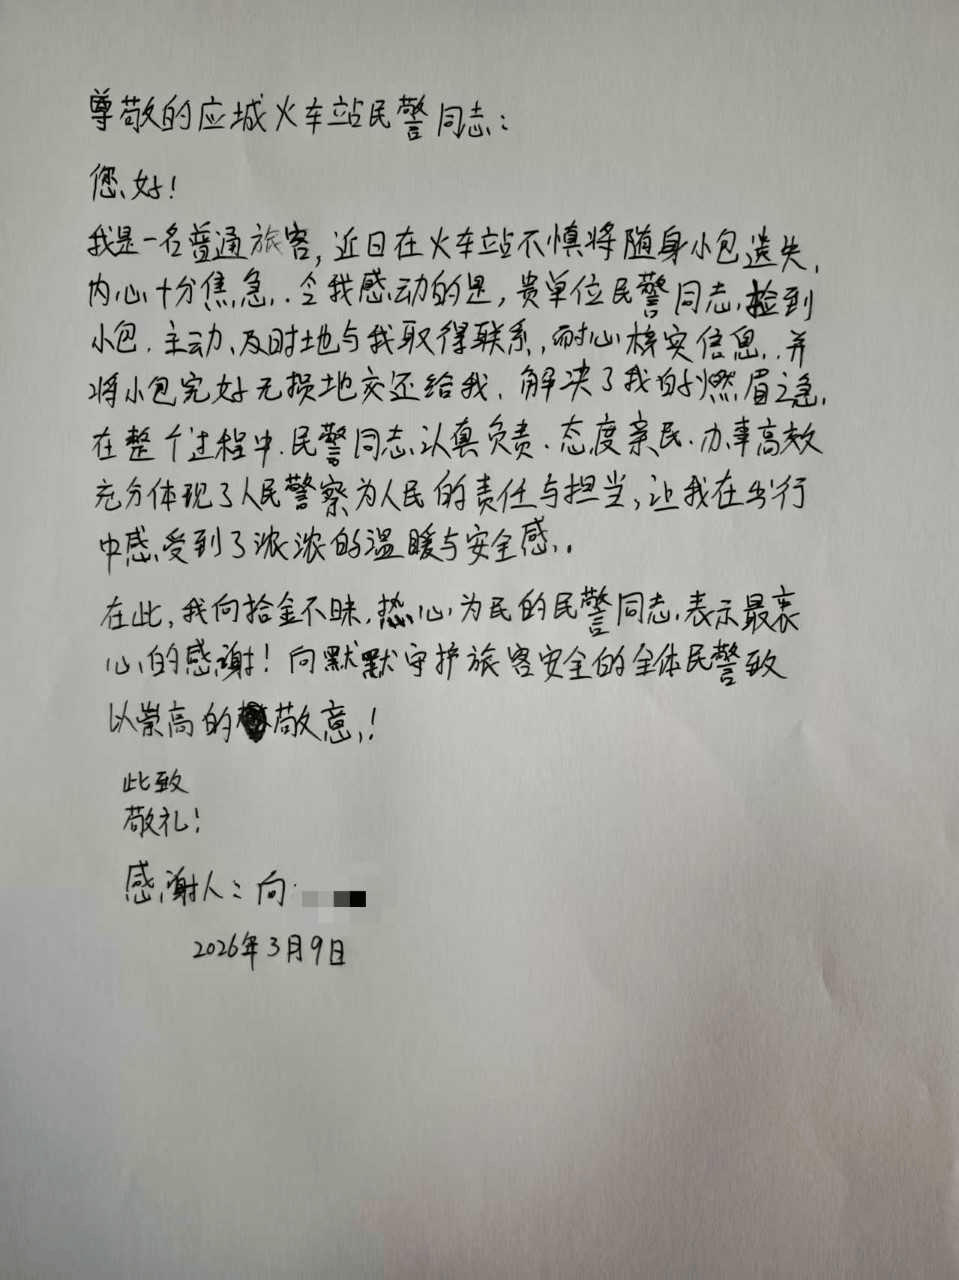 尊敬的应城火车站民警同志：
您好！
我是一名普通旅客，近日在火车站不慎将随身小包遗失，
内心十分焦急，.令我感动的是，贵单位民警同志，捡到
小包.主动、及时地与我取得联系，耐心核实信息，.并
将小包完好无损地交还给我，解决了我的燃眉之急，
在整个过程中.民警同志认真负责、态度亲民、办事高效
充分体现了人民警察为人民的责任与担当，让我在出行
中感受到了浓浓的温暖与安全感..
在此，我向拾金不昧，热心为民的民警同志，表示最衷
心的感谢！向默默守护旅客安全的全体民警致
以崇高的敬意！
此致
敬礼！
感谢人：向
2026年3月9日